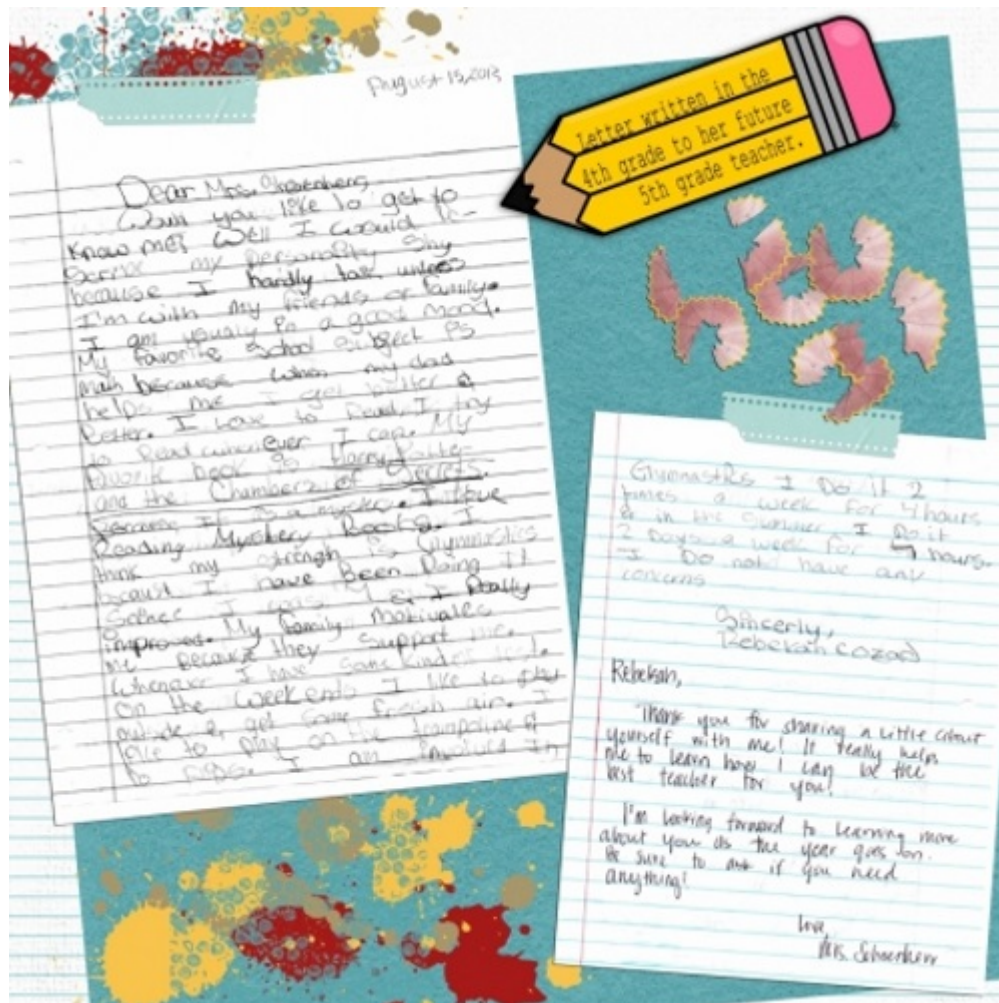 August 15, 2013
Letter written in the
4th grade to her future
5th grade teacher.
Dear Mrs.
you like to get to
Know me? Well I would
my personality Shy
because I hardly talk unless
I'm with my friends or family.
I am usually in a good mood.
My favorite School Subject is
math because when my dad
helps me I get better &
better. I Love to Read, I try
to Read whenever I can. My
favorite book is Harry Potter
and the Chamber of Secrets.
Because It is a mystery. I love
Reading Mystery Books. I
think my strength is Gymnastics
I have Been Doing It
I was & I Really
improved. My family motivates
me Because they support me.
Whenever I have some kind of
on the weekends I like to play
outside & get some fresh air. I
to play on the trampoline &
I am involved in
Gymnastics I Do it 2
times a week for 4 hours
& in the summer I Do it
2 Days a week for hours.
I Do not have any
concerns
Sincerly,
Rebekah Cozad
Rebekah,
Thank you for sharing a little about
yourself with me! It really helps
me to learn how I can be the
best teacher for you!
I'm looking forward to learning more
about you as the year goes on.
Be sure to ask if you need
anything!
Love,
Mrs. Schoenherr